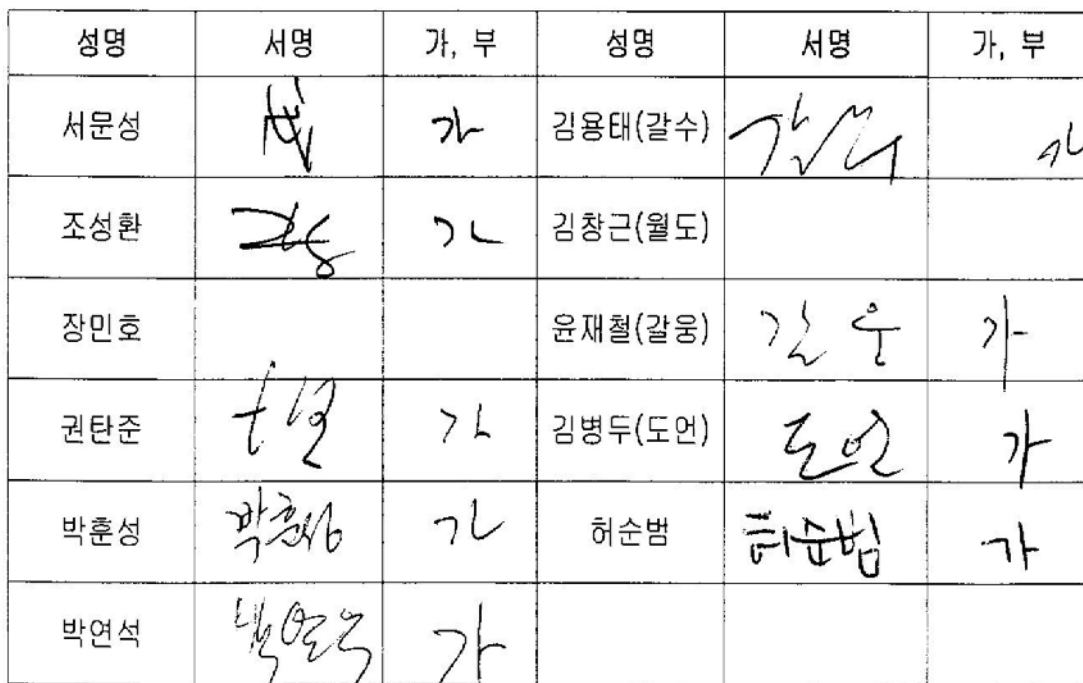 성명 서명 가, 부 성명 서명 가, 부
서문성 가 김용태(갈수) 갈수 가
조성환 가 김창근(월도)
장민호 윤재철(갈웅) 갈웅 가
권탄준 가 김병두(도언) 도언 가
박훈성 박훈성 가 허순범 허순범 가
박연석 박연석 가